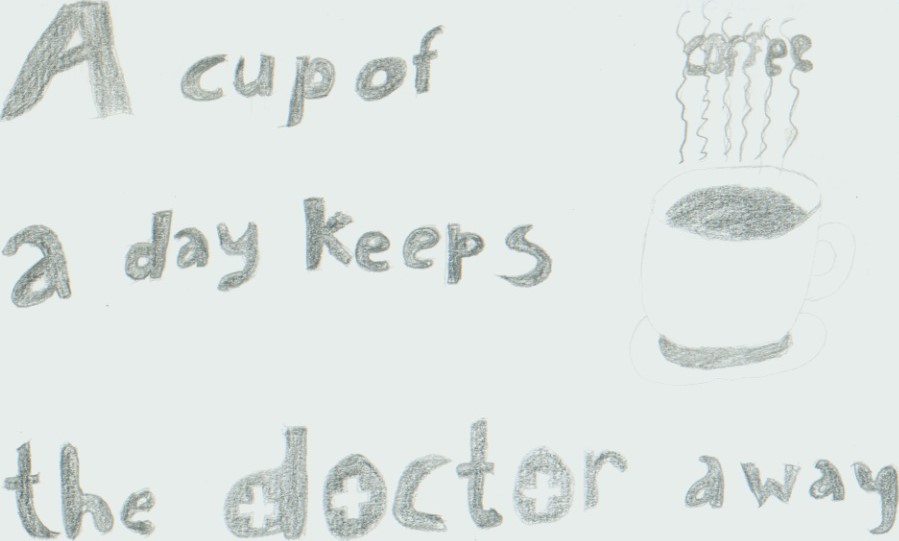 A cup of coffee
a day keeps
the doctor away